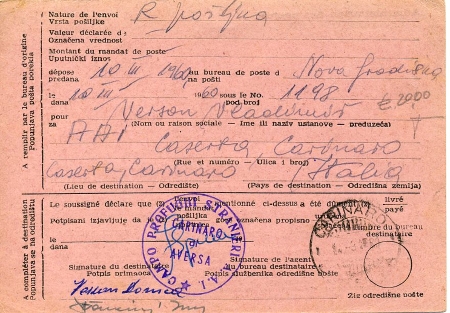 Nature de l'envoi
Vrsta pošiljke R pošiljka
Valeur déclarée de
Označena vrednost
Montant du mandat de poste
Uputnički iznos
dépose
predana 10 III 1960 au bureau de poste d
na pošti Nova Gradiška
le
dana 10 III 1960 sous le No.
pod broj 1198
pour
za Verson Vladimir
(Nom ou raison sociale - Ime ili naziv ustanove - preduzeća)
AAI Caserta, Carinaro
(Rue et numéro - Ulica i broj)
Caserta, Carinaro Italia
(Lieu de destination - Odredište) (Pays de destination - Odredišna zemlja)
A remplir par le bureau d'origine
Popunjava pošta porekla
Le soussigné déclare que l'envoi
pošiljka mentionné ci-dessus a été dûment livré
payé
Potpisani izjavljuje da je gore označena propisno
le
dana
Signature du destinataire
Potpis primaoca
Signature de l'agent du bureau
Potpis službenika odredišne pošte
Timbre du bureau
destinataire
Žig odredišne pošte
A compléter à destination
Popunjava se na odredištu
CAMPO PROFUGHI STRANIERI A.A.I.
CARINARO
DI
AVERSA
CARINARO